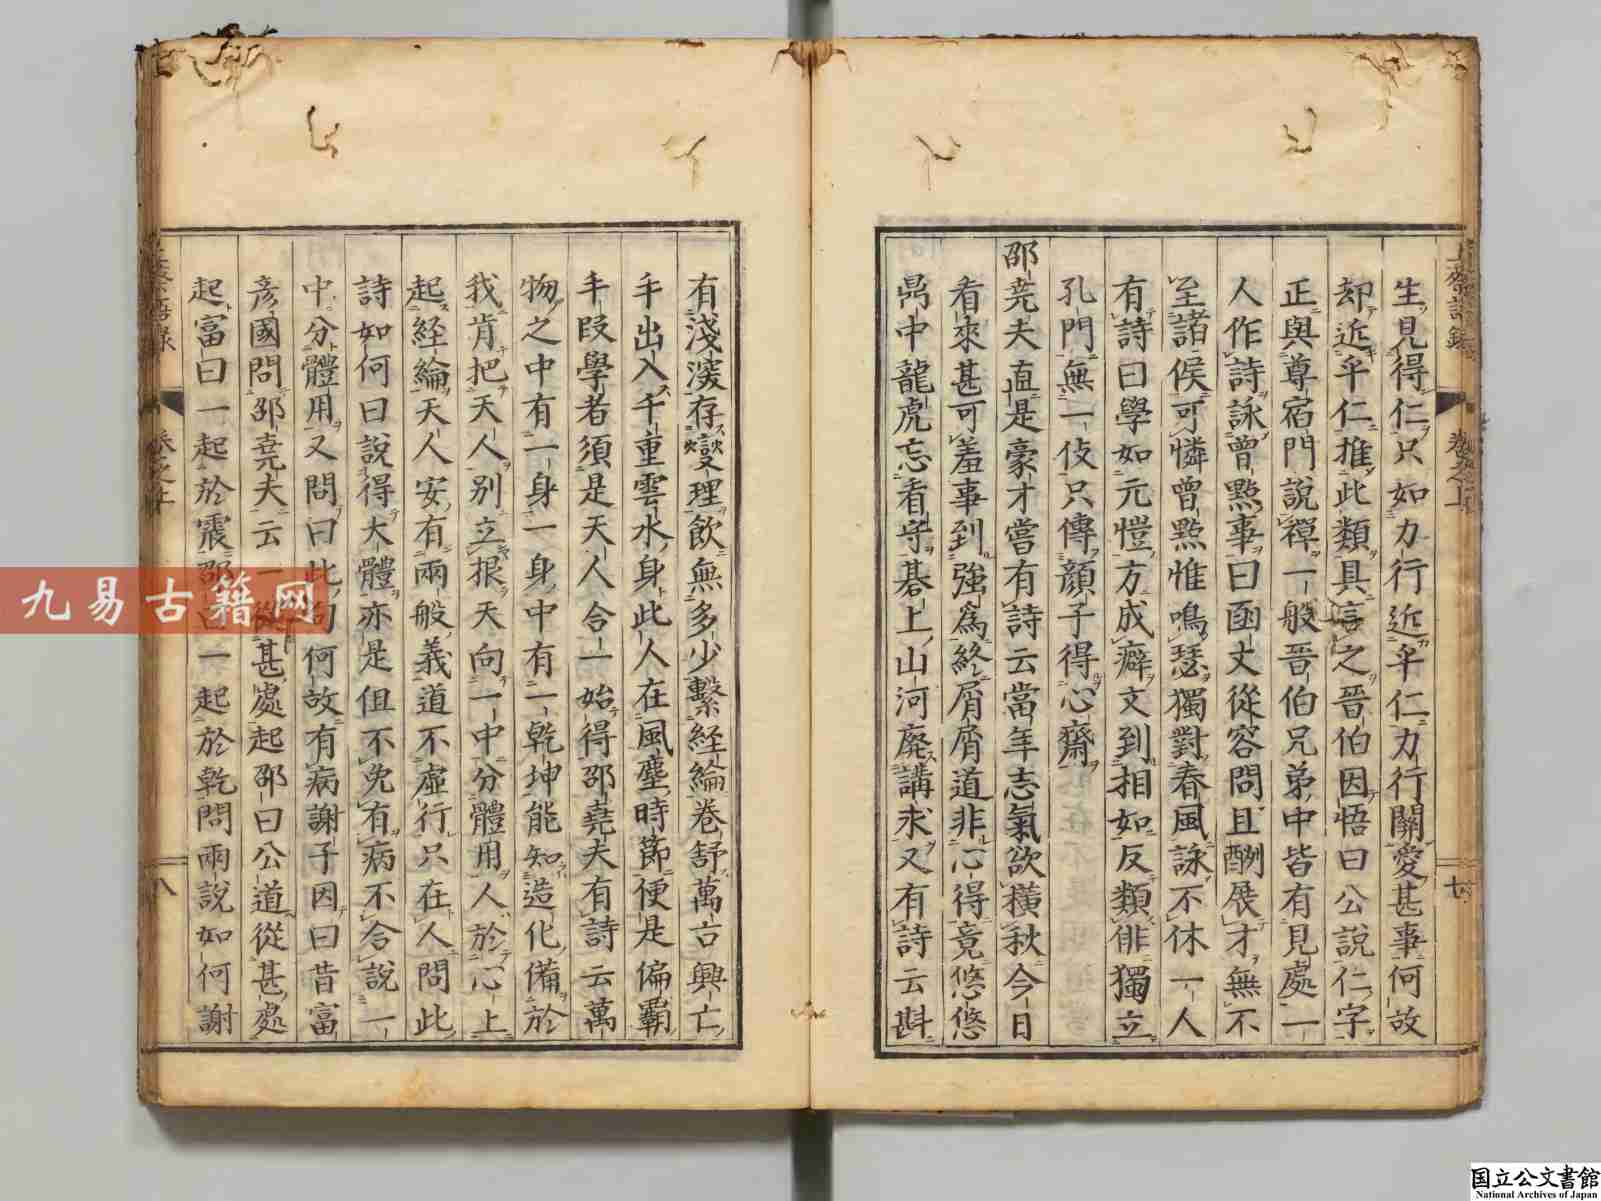 上蔡語錄 卷之上 七
生見得仁只如力行近乎仁力行關愛甚事何故
却近乎仁推此類具言之晉伯因悟曰公說仁字
正與尊宿門說禪一般晉伯兄弟中皆有見處一
人作詩詠曾點事曰函丈從容問且酬展才無不
至諸侯可憐曾點惟鳴瑟獨對春風詠不休一人
有詩曰學如元愷方成癖文到相如反類俳獨立
孔門無一伎只傳顏子得心齋
邵堯夫直是豪才嘗有詩云當年志氣欲橫秋今日
看來甚可羞事到強爲終屑屑道非心得竟悠悠
鼎中龍虎忘看守碁上山河廢講求又有詩云斟
有淺深存燮理飲無多少繫經綸卷舒萬古興亡
手出入千重雲水身此人在風塵時節便是偏霸
手段學者須是天人合一始得邵堯夫有詩云萬
物之中有一身一身中有一乾坤能知造化備於
我肯把天人別立根天向一中分體用人於心上
起經綸天人安有兩般義道不虛行只在人問此
詩如何曰說得大體亦是但不免有病不合說一
中分體用又問曰此句何故有病謝子因曰昔富
彦國問邵堯夫云一從甚處起邵曰公道從甚處
起富曰一起於震邵曰一起於乾問兩說如何謝
八
九易古籍网
国立公文書館
National Archives of Japan